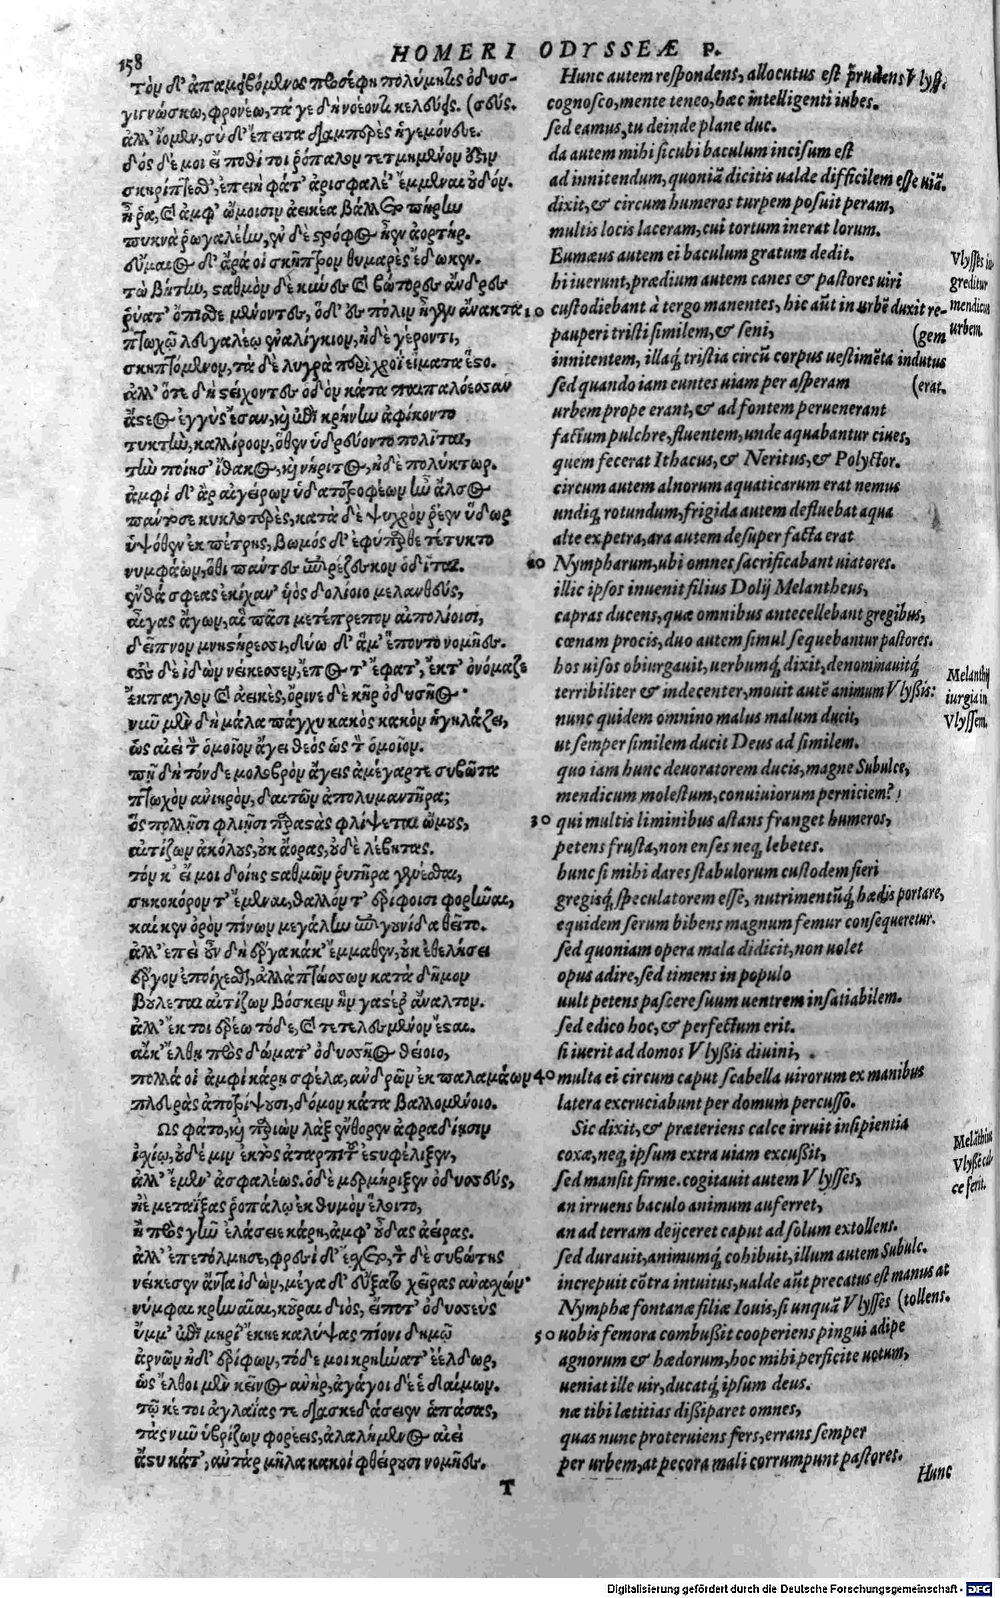 158
HOMERI ODYSSEÆ Ρ.
τὸν δ' ἀπαμειβόμενος προσέφη πολύμητις ὀδυσ-
γιγνώσκω, φρονέω, τάγε δὴ νοέοντι κελεύεις. (σεύς.
ἀλλ' ἴομεν, σὺ δ' ἔπειτα διαμπερὲς ἡγεμόνευε.
δὸς δέ μοι εἴ ποθί τοι ῥόπαλον τετμημένον ἐστὶν
σκηρίπτεσθ', ἐπειὴ φάτ' ἀρισφαλέ' ἔμμεναι οὐδόν.
ἦ ῥα, καὶ ἀμφ' ὤμοισιν ἀεικέα βάλλετο πήρην
πυκνὰ ῥωγαλέην, ἐν δὲ στρόφος ἦεν ἀορτήρ.
εὔμαιος δ' ἄρα οἱ σκῆπτρον θυμαρὲς ἔδωκεν.
τὼ βήτην, σταθμὸν δὲ κύνες καὶ βώτορες ἄνδρες
ῥύατ' ὄπισθε μένοντες, ὁ δ' ἐς πόλιν ἦγεν ἄνακτα
πτωχῷ λευγαλέῳ ἐναλίγκιον, ἠδὲ γέροντι,
σκηπτόμενον, τὰ δὲ λυγρὰ περὶ χροῒ εἵματα ἕστο.
ἀλλ' ὅτε δὴ στείχοντες ὁδὸν κάτα παιπαλόεσσαν
ἄστεος ἐγγὺς ἔσαν, καὶ ἐπὶ κρήνην ἀφίκοντο
τυκτὴν, καλλίροον, ὅθεν ὑδρεύοντο πολῖται,
τὴν ποίησ' ἴθακος, καὶ νήριτος, ἠδὲ πολύκτωρ.
ἀμφὶ δ' ἂρ αἰγείρων ὑδατοτρεφέων ἦν ἄλσος
πάντοσε κυκλοτερὲς, κατὰ δὲ ψυχρὸν ῥέεν ὕδωρ
ὑψόθεν ἐκ πέτρης, βωμὸς δ' ἐφύπερθε τέτυκτο
νυμφάων, ὅθι πάντες ἐπιρέζεσκον ὁδῖται.
ἔνθά σφεας ἐκίχαν' ὑὸς δολίοιο μελανθεὺς,
αἶγας ἄγων, αἳ πᾶσι μετέπρεπον αἰπολίοισι,
δεῖπνον μνηστήρεσσι, δύω δ' ἅμ' ἕποντο νομῆες.
τοὺς δὲ ἰδὼν νείκεσσεν, ἔπος τ' ἔφατ', ἔκ τ' ὀνόμαζε
ἔκπαγλον καὶ ἀεικὲς, ὄρινε δὲ κῆρ ὀδυσῆος·
νῦν μὲν δὴ μάλα πάγχυ κακὸς κακὸν ἡγηλάζει,
ὡς αἰεὶ τὸν ὁμοῖον ἄγει θεὸς ὡς τὸν ὁμοῖον.
πῆ δὴ τόνδε μολοβρὸν ἄγεις ἀμέγαρτε συβῶτα
πτωχὸν ἀνιηρὸν, δαιτῶν ἀπολυμαντῆρα;
ὃς πολλῇσι φλιῇσι παραστὰς φλίψεται ὤμους,
αἰτίζων ἀκόλους, οὐκ ἄορας, οὐδὲ λέβητας.
τόν κ' εἴ μοι δοίης σταθμῶν ῥυτῆρα γενέσθαι,
σηκοκόρον τ' ἔμεναι, θαλλόν τ' ἐρίφοισι φορῆναι,
καί κεν ὀρὸν πίνων μεγάλην ἐπιγουνίδα θεῖτο.
ἀλλ' ἐπεὶ οὖν δὴ ἔργα κάκ' ἔμμαθεν, οὐκ ἐθελήσει
ἔργον ἐποίχεσθαι, ἀλλὰ πτώσσων κατὰ δῆμον
βούλεται αἰτίζων βόσκειν ἣν γαστέρ' ἄναλτον.
ἀλλ' ἔκ τοι ἐρέω τόδε, καὶ τετελεσμένον ἔσται.
αἴ κ' ἔλθῃ πρὸς δώματ' ὀδυσσῆος θείοιο,
πολλά οἱ ἀμφὶ κάρη σφέλα, ἀνδρῶν ἐκ παλαμάων
πλευρὰς ἀποτρίψουσι, δόμον κάτα βαλλομένοιο.
Ὣς φάτο, καὶ παριὼν λὰξ ἔνθορεν ἀφραδίῃσιν
ἰσχίῳ, οὐδέ μιν ἐκτὸς ἀταρπιτοῦ ἐστυφέλιξεν,
ἀλλ' ἔμεν' ἀσφαλέως. ὁ δὲ μερμήριξεν ὀδυσσεύς,
ἠὲ μεταΐξας ῥοπάλῳ ἐκ θυμὸν ἕλοιτο,
ἢ πρὸς γῆν ἐλάσειε κάρη, ἀμφ' οὖδας ἀείρας.
ἀλλ' ἐπετόλμησε, φρεσὶ δ' ἔσχετο, τὸν δὲ συβώτης
νείκεσεν ἄντα ἰδὼν, μέγα δ' εὔξατο χεῖρας ἀνασχών·
νύμφαι κρηναῖαι, κοῦραι διὸς, εἴποτ' ὀδυσσεὺς
ὔμμ' ἐπὶ μηρί' ἔκηε καλύψας πίονι δημῷ
ἀρνῶν ἠδ' ἐρίφων, τόδε μοι κρηήνατ' ἐέλδωρ,
ὡς ἔλθοι μὲν κεῖνος ἀνὴρ, ἀγάγοι δέ ἑ δαίμων.
τῷ κέ τοι ἀγλαΐας τε διασκεδάσειεν ἁπάσας,
τὰς νῦν ὑβρίζων φορέεις, ἀλαλήμενος αἰεὶ
ἄστυ κάτ', αὐτὰρ μῆλα κακοὶ φθείρουσι νομῆες.
T
Hunc autem respondens, allocutus est prudens Vlyss.
cognosco, mente teneo, hæc intelligenti iubes.
sed eamus, tu deinde plane duc.
da autem mihi sicubi baculum incisum est
ad innitendum, quoniã dicitis ualde difficilem esse uiã.
dixit, & circum humeros turpem posuit peram,
multis locis laceram, cui tortum inerat lorum.
Eumæus autem ei baculum gratum dedit.
hi iuerunt, prædium autem canes & pastores uiri
10 custodiebant à tergo manentes, hic aũt in urbẽ duxit re-
pauperi tristi similem, & seni, (gem
innitentem, illaq; tristia circũ corpus uestimẽta indutus
sed quando iam euntes uiam per asperam (erat.
urbem prope erant, & ad fontem peruenerant
factum pulchre, fluentem, unde aquabantur ciues,
quem fecerat Ithacus, & Neritus, & Polyctor.
circum autem alnorum aquaticarum erat nemus
undiq; rotundum, frigida autem defluebat aqua
alte ex petra, ara autem desuper facta erat
20 Nympharum, ubi omnes sacrificabant uiatores.
illic ipsos inuenit filius Dolij Melantheus,
capras ducens, quæ omnibus antecellebant gregibus,
cœnam procis, duo autem simul sequebantur pastores.
hos uisos obiurgauit, uerbumq; dixit, denominauitq;
terribiliter & indecenter, mouit autẽ animum Vlyßis:
nunc quidem omnino malus malum ducit,
ut semper similem ducit Deus ad similem.
quo iam hunc deuoratorem ducis, magne Subulce,
mendicum molestum, conuiuiorum perniciem?
30 qui multis liminibus astans franget humeros,
petens frusta, non enses neq; lebetes.
hunc si mihi dares stabulorum custodem fieri
gregisq; speculatorem esse, nutrimentũq; hædis portare,
equidem serum bibens magnum femur consequeretur.
sed quoniam opera mala didicit, non uolet
opus adire, sed timens in populo
uult petens pascere suum uentrem insatiabilem.
sed edico hoc, & perfectum erit.
si iuerit ad domos Vlyßis diuini,
40 multa ei circum caput scabella uirorum ex manibus
latera excruciabunt per domum percusso.
Sic dixit, & præteriens calce irruit insipientia
coxæ, neq; ipsum extra uiam excußit,
sed mansit firme. cogitauit autem Vlysses,
an irruens baculo animum auferret,
an ad terram deijceret caput ad solum extollens.
sed durauit, animumq; cohibuit, illum autem Subulc.
increpuit cõtra intuitus, ualde aũt precatus est manus at
Nymphæ fontanæ filiæ Iouis, si unquã Vlysses (tollens.
50 uobis femora combußit cooperiens pingui adipe
agnorum & hædorum, hoc mihi perficite uotum,
ueniat ille uir, ducatq; ipsum deus.
næ tibi lætitias dißiparet omnes,
quas nunc proteruiens fers, errans semper
per urbem, at pecora mali corrumpunt pastores.
Hunc
Vlysses in-
greditur
mendicus
urbem.
Melanthij
iurgia in
Vlyssem.
Melãthius
Vlyßẽ cal-
ce ferit.
Digitalisierung gefördert durch die Deutsche Forschungsgemeinschaft - DFG